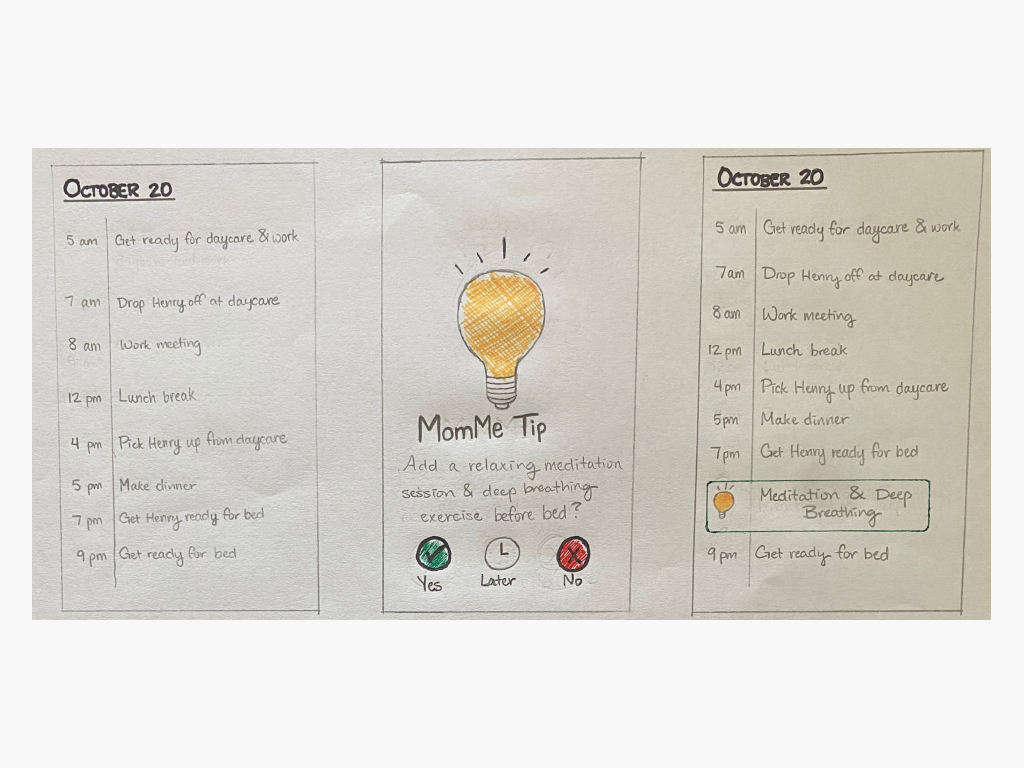 OCTOBER 20
5 am Get ready for daycare & work
7 am Drop Henry off at daycare
8 am Work meeting
12 pm Lunch break
4 pm Pick Henry up from daycare
5 pm Make dinner
7 pm Get Henry ready for bed
9 pm Get ready for bed
MomMe Tip
Add a relaxing meditation
session & deep breathing
exercise before bed?
Yes Later No
OCTOBER 20
5 am Get ready for daycare & work
7am Drop Henry off at daycare
8 am Work meeting
12 pm Lunch break
4pm Pick Henry up from daycare
5pm Make dinner
7pm Get Henry ready for bed
Meditation & Deep
Breathing
9 pm Get ready for bed